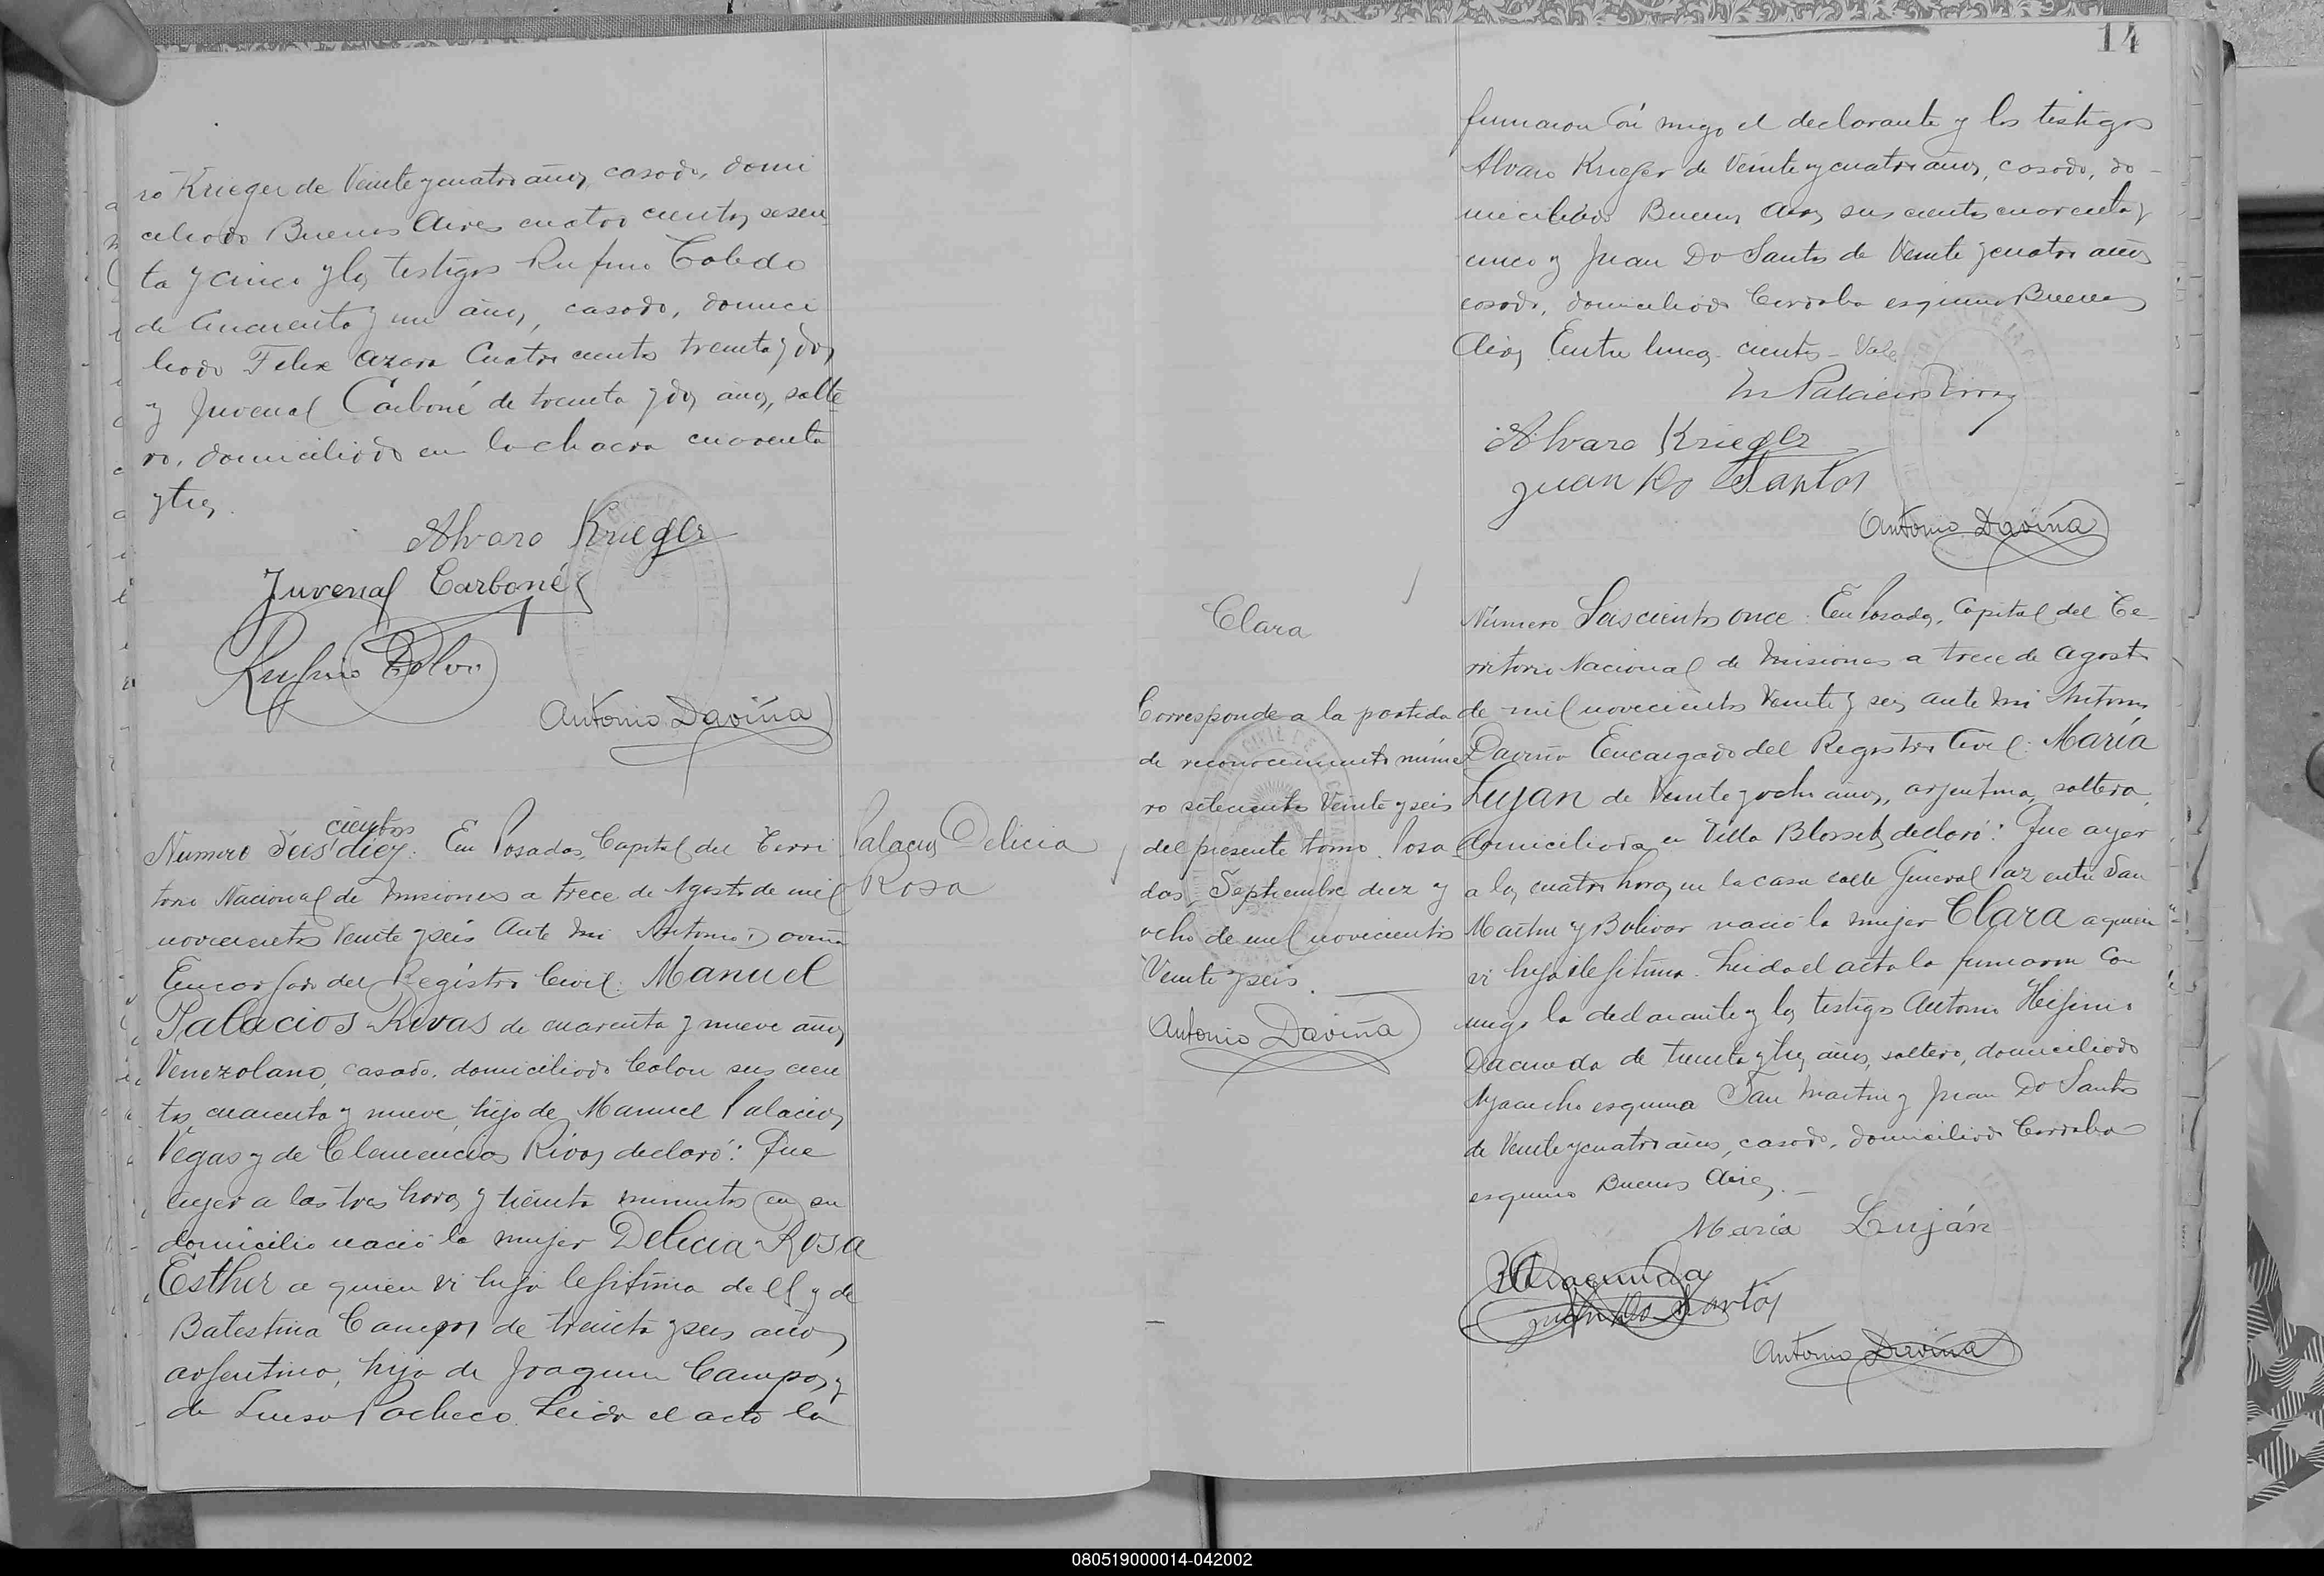 ro Krieger de Veinte y cuatro años, casado, domi
ciliado Buenos Aires cuatro cientos sesen
ta y cinco y los testigos Rufino Toledo
de Cincuenta y un años, casado, domici
liado Felix Azara Cuatro cientos treinta y dos
y Juvenal Carboné de treinta y dos años, solte
ro, domiciliado en la chacra cuarenta
y tres.
Alvaro Krieger
Juvenal Carboné
Rufino
Antonio Daviña
cientos
Numero Seis diez: En Posadas, Capital del Terri
torio Nacional de Misiones a trece de Agosto de mil
novecientos Veinte y seis Ante mi Antonio Daviña
Encargado del Registro Civil: Manuel
Palacios Rivas de cuarenta y nueve años,
Venezolano, casado, domiciliado Colon seis cien
tos cuarenta y nueve, hijo de Manuel Palacios
Vegas y de Clemencia Rivas declaró: Que
ayer a las tres horas y treinta minutos en su
domicilio nació la mujer Delicia Rosa
Esther a quien vi hija legitima de el y de
Batestina Campos de treinta y seis años
argentina, hija de Joaquin Campos y
de Luisa Pacheco. Leida el acta la
Palacios Delicia
Rosa
14
firmaron con migo el declarante y los testigos
Alvaro Krieger de Veinte y cuatro años, casado, do-
miciliado Buenos Aires seis cientos cuarenta y
cinco y Juan Do Santos de Veinte y cuatro años
casado, domiciliado Cordoba esquina Buenos
Aires Entre lineas - cientos - Vale
M Palacios Rivas
Alvaro Krieger
Juan Do Santos
Antonio Daviña
Clara
Corresponde a la partida
de reconocimiento núme
ro setecientos Veinte y seis
del presente tomo. Posa
das, Septiembre diez y
ocho de mil novecientos
Veinte y seis.
Antonio Daviña
Número Seiscientos once: En Posadas, Capital del Te-
rritorio Nacional de Misiones a trece de Agosto
de mil novecientos Veinte y seis ante mi Antonio
Daviña Encargado del Registro Civil: María
Lujan de Veinte y ocho años, argentina, soltera,
domiciliada en Villa Blosset, declaró: Que ayer
a las cuatro horas en la casa calle General Paz entre San
Martin y Bolivar nació la mujer Clara a quien
vi hija ilegitima. Leida el acta la firmaron con
migo la declarante y los testigos Antonio Higinio
Dacunda de treinta y tres años, soltero, domiciliado
Ayacucho esquina San Martin y Juan Do Santos
de Veinte y cuatro años, casado, domiciliado Cordoba
esquina Buenos Aires.-
María Luján
Juan Do Santos
Antonio Daviña
080519000014-042002